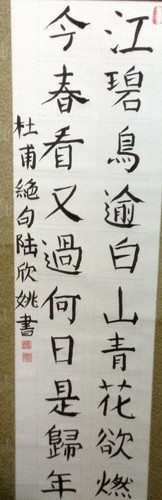 江碧鳥逾白山青花欲燃
今春看又過何日是歸年
杜甫絕句陸欣姚書